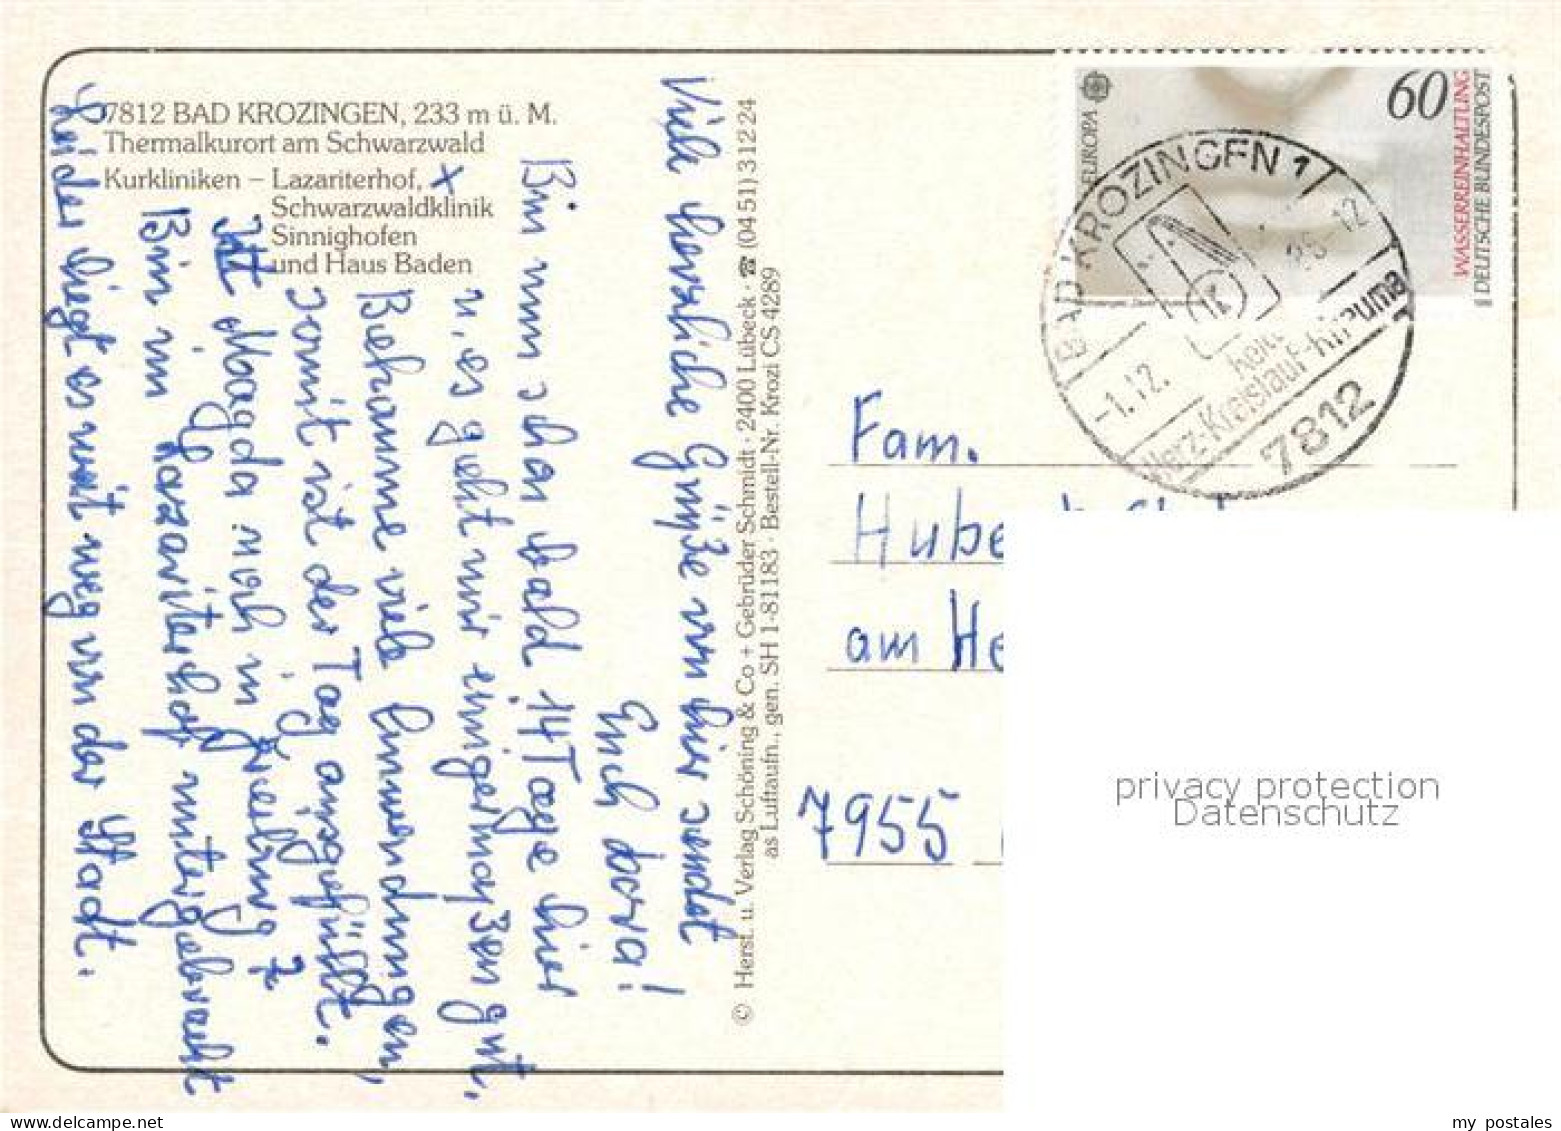 7812 BAD KROZINGEN, 233 m ü. M.
Thermalkurort am Schwarzwald
Kurkliniken – Lazariterhof, x
Schwarzwaldklinik
Sinnighofen
und Haus Baden
Viele herzliche Grüße von hier sendet
Euch
Bin nun schon bald 14 Tage hier
u. es geht mir einigermaßen gut.
Bekomme viele Anwendungen,
somit ist der Tag ausgefüllt.
Ist Magda noch in Freiburg?
Bin im Lazariterhof untergebracht
Leider liegt es weit weg von der Stadt.
© Herst. u. Verlag Schöning & Co + Gebrüder Schmidt · 2400 Lübeck · ☎ (04 51) 3 12 24
as Luftaufn., gen. SH 1-81183 · Bestell-Nr. Krozi CS 4289
EUROPA
60
WASSERREINHALTUNG
DEUTSCHE BUNDESPOST
BAD KROZINGEN 1
-1.12. 12
Herz-Kreislauf-Rheuma
7812
Fam.
Hube
am He
7955
privacy protection
Datenschutz
my postales